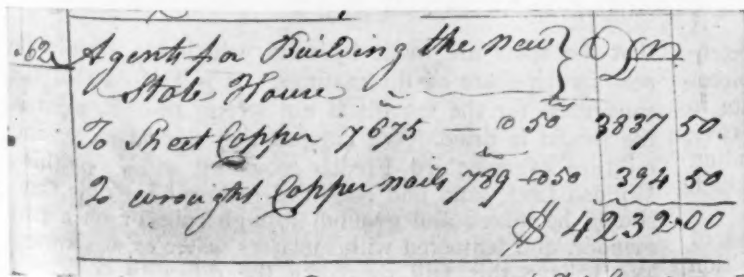 .62 Agents for Building the new } Drs
State House
To Sheet Copper 7675 — @ 50 3837 50.
2 wrought Copper nails 789 @ 50 394 50
$ 4232.00